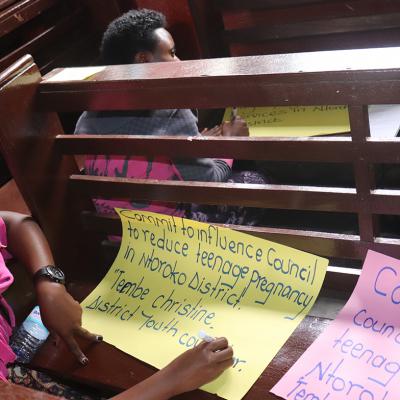 vices in Ntor
District
Commit to influence Council
to reduce teenage pregnancy
in Ntoroko District.
"Tembe christine.
District Youth cou
Co
counci
teenag
Ntoro
"Tem